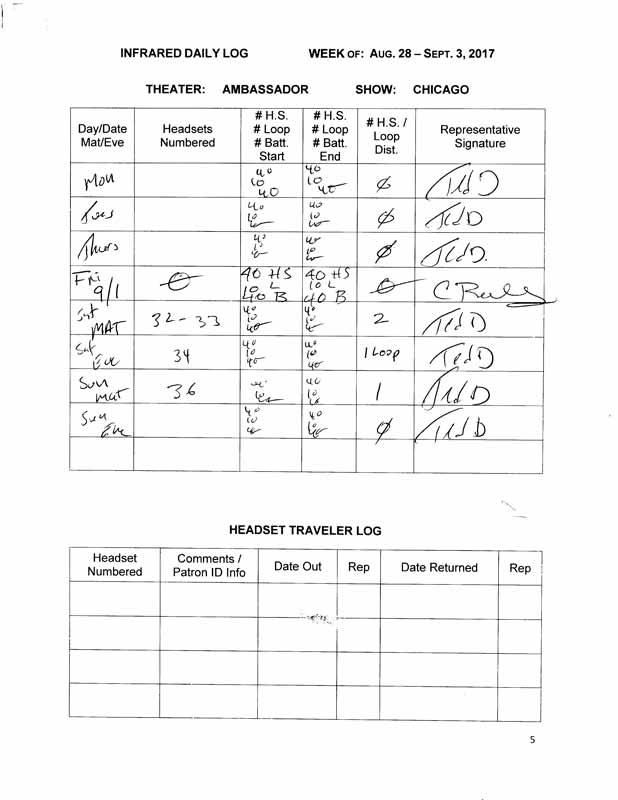 INFRARED DAILY LOG WEEK OF: AUG. 28 – SEPT. 3, 2017
THEATER: AMBASSADOR SHOW: CHICAGO
Day/Date Mat/Eve Headsets Numbered # H.S. # Loop # Batt. Start # H.S. # Loop # Batt. End # H.S. / Loop Dist. Representative Signature
Mon 40 10 40 40 10 40 Ø Ted D
Tues 40 10 40 10 Ø Ted D
Thurs 40 10 40 10 Ø Ted D.
Fri 9/1 Ø 40 HS 10 L 40 B 40 HS 10 L 40 B Ø
Sat MAT 32-33 40 10 40 40 10 2 Ted D
Sat Eve 34 40 10 40 40 10 40 1 Loop Ted D
Sun Mat 36 40 10 1 Ted D
Sun Eve 40 10 40 10 Ø Ted D
HEADSET TRAVELER LOG
Headset Numbered Comments / Patron ID Info Date Out Rep Date Returned Rep
5